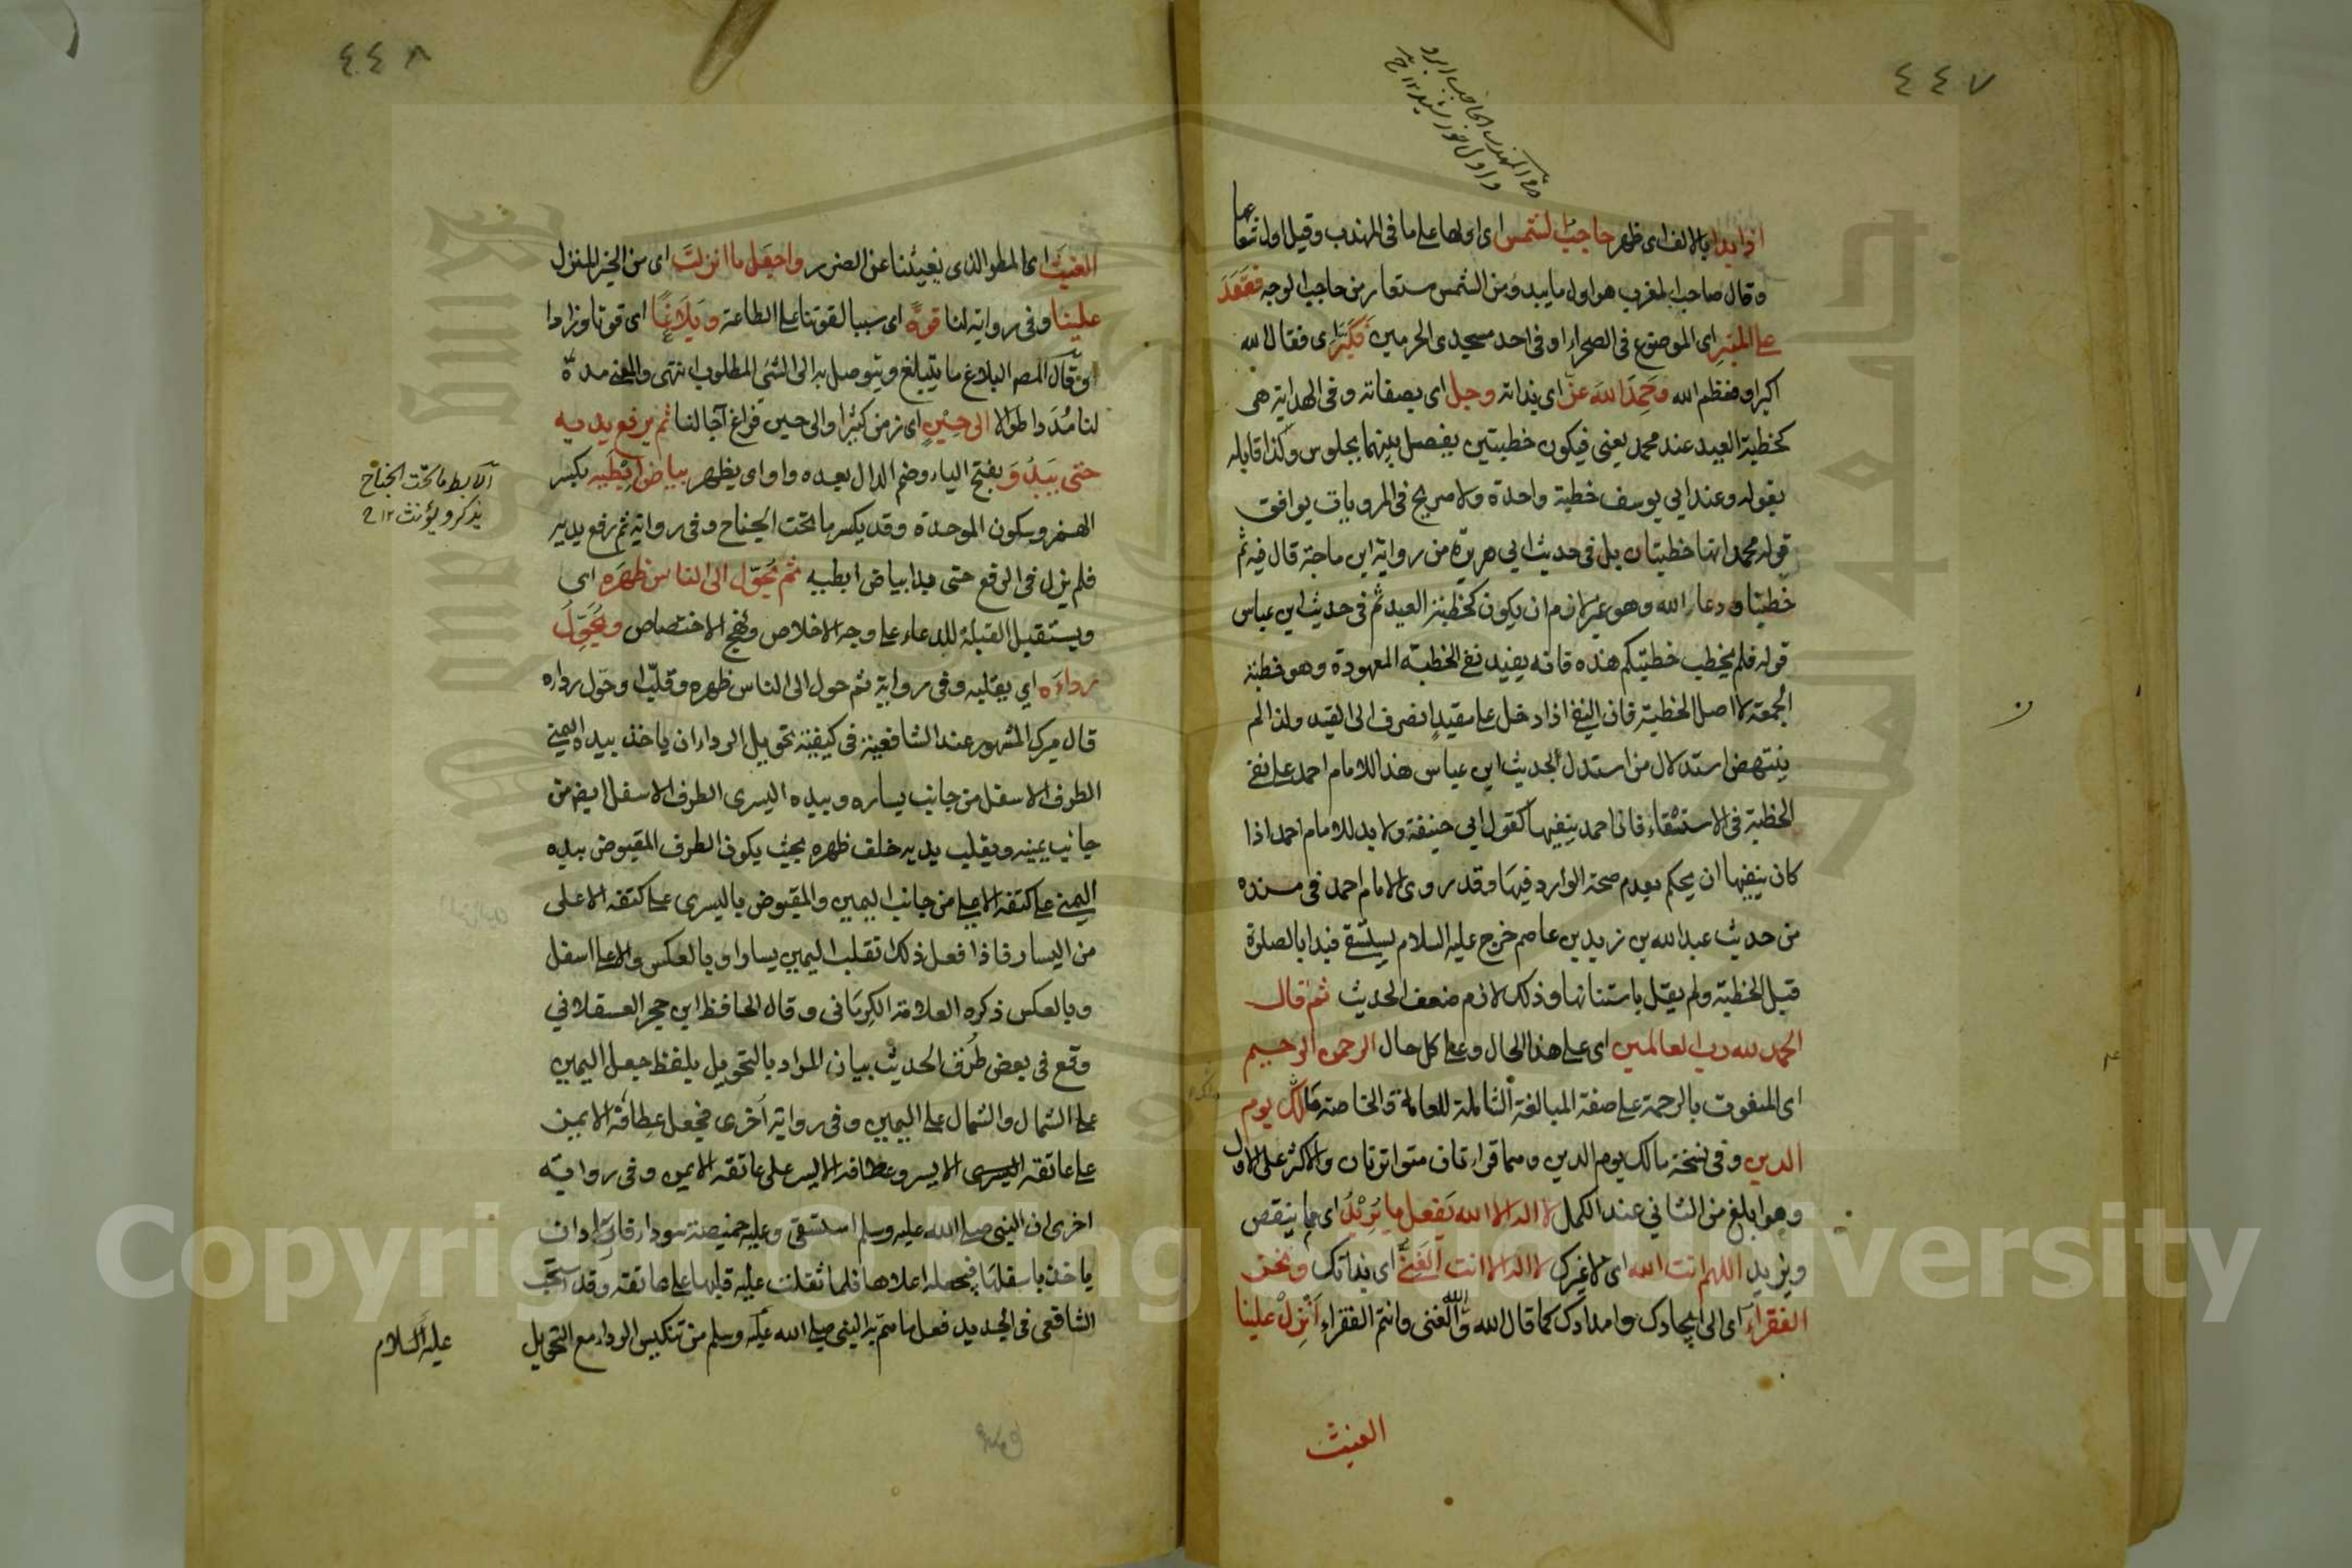 ٤٤٧
اذا بدا بالالف اى ظهر حاجب الشمس اى اولها على ما فى المهذب وقيل اول شعاعها
وقال صاحب المغرب هو اول ما يبدو من الشمس مستعار من حاجب الوجه فقعد
على المنبر اى الموضوع فى الصحراء او فى احد مسجدى الحرمين فكبر اى فقال الله
اكبر او فعظم الله وحمد الله عز اى بذاته وجل اى بصفاته وفى الهداية هى
كخطبة العيد عند محمد يعنى فيكون خطبتين يفصل بينهما بجلوس وكذا قابله
بقوله وعند ابي يوسف خطبة واحدة ولا صريح فى المرويات يوافق
قول محمد انها خطبتان بل فى حديث ابي هريرة من رواية ابن ماجة قال فيه ثم
خطبنا ودعا الله وهو غير لازم ان يكون كخطبة العيد ثم فى حديث ابن عباس
قوله فلم يخطب خطبتكم هذه فانه يفيد نفى الخطبة المعهودة وهو خطبة
الجمعة لا اصل الخطبة فان النفى اذا دخل على مقيد انصرف الى القيد ولذا لم
ينتهض استدلال من استدل بحديث ابن عباس هذا للامام احمد على نفى
الخطبة فى الاستسقاء فان احمد ينفيها كقول ابي حنيفة ولا بد للامام احمد اذا
كان ينفيها ان يحكم بعدم صحة الوارد فيها وقد روى الامام احمد فى مسنده
من حديث عبد الله بن زيد بن عاصم خرج عليه السلام يستسقى فبدا بالصلوة
قبل الخطبة ولم يقل باستنانها وذلك لازم ضعف الحديث ثم قال
الحمد لله رب العالمين اى على هذا الحال وعلى كل حال الرحمن الرحيم
اى المنعوت بالرحمة على صفة المبالغة الشاملة للعامة والخاصة مالك يوم
الدين وفى نسخة مالك يوم الدين وهما قراءتان متواترتان والاكثر على الاول
وهو ابلغ من الثاني عند الكمل لا اله الا الله يفعل ما يريد اى مما ينقص
ويزيد اللهم انت الله اى لا غيرك لا اله الا انت الغنى اى بذاتك ونحن
الفقراء اى الى ايجادك وامدادك كما قال الله والله الغنى وانتم الفقراء انزل علينا
الغيث
٤٤٨
الغيث اى المطر الذى يغيثنا عن الضرر واجعل ما انزلت اى من الخير المنزل
علينا وفى رواية لنا قوة اى سببا لقوتنا على الطاعة وبلاغا اى قوتا وزادا
وقال المصر البلاغ ما يتبلغ ويتوصل به الى الشئ المطلوب انتهى والمعنى مدة
لنا مددا طوالا الى حين اى زمن كثير او الى حين فراغ آجالنا ثم يرفع يديه
حتى يبدو بفتح الياء وضم الدال بعده واو اى يظهر بياض ابطيه بكسر
الهمز وسكون الموحدة وقد يكسر ما تحت الجناح وفى رواية ثم رفع يديه
فلم يزل فى الرفع حتى بدا بياض ابطيه ثم يحول الى الناس ظهره اى
ويستقبل القبلة للدعاء على وجه الاخلاص ونهج الاختصاص ويحول
رداءه اي يقلبه وفى رواية ثم حول الى الناس ظهره وقلب او حول رداءه
قال ميرك المشهور عند الشافعية فى كيفية تحويل الرداء ان ياخذ بيده اليمنى
الطرف الاسفل من جانب يساره وبيده اليسرى الطرف الاسفل ايض من
جانب يمينه ويقلب يديه خلف ظهره بحيث يكون الطرف المقبوض بيده
اليمنى على كتفه الاعلى من جانب اليمين والمقبوض باليسرى على كتفه الاعلى
من اليسار فاذا فعل ذلك انقلب اليمين يسارا وبالعكس والاعلى اسفل
وبالعكس ذكره العلامة الكرمانى وقال الحافظ ابن حجر العسقلاني
وقع فى بعض طرق الحديث بيان المراد بالتحويل بلفظ جعل اليمين
على الشمال والشمال على اليمين وفى رواية اخرى فجعل عطافه الايمن
على عاتقه الايسر وعطافه الايسر على عاتقه الايمن وفى رواية
اخرى ان النبى صلى الله عليه وسلم استسقى وعليه خميصة سوداء فاراد ان
ياخذ باسفلها فيجعله اعلاها فلما ثقلت عليه قلبها على عاتقه وقد استحب
الشافعى فى الجديد فعل ما هم به النبى صلى الله عليه وسلم من تنكيس الرداء مع التحويل
عليه السلام
الابط ما تحت الجناح
يذكر ويؤنث ١٢